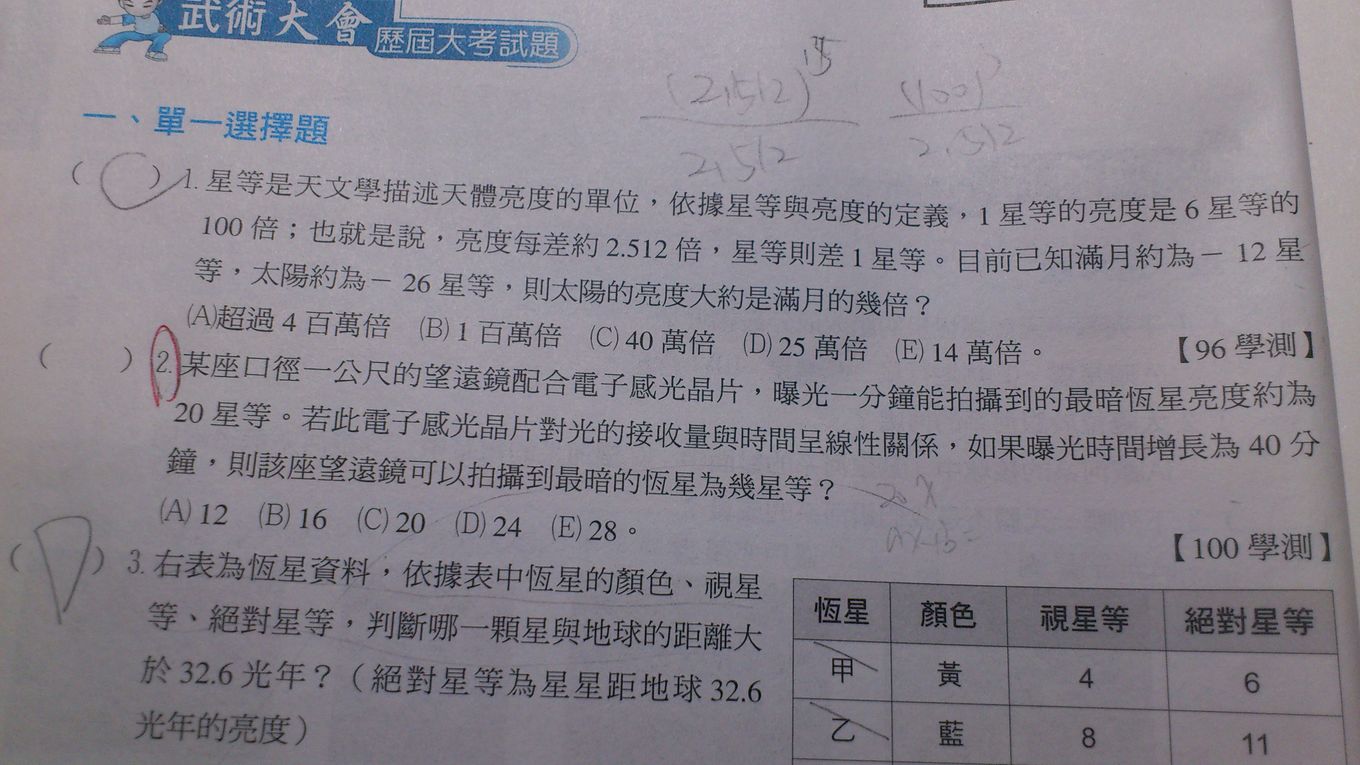 武術大會
歷屆大考試題
(2.512)
2.512
(100)
2.512
一、單一選擇題
( ) 1. 星等是天文學描述天體亮度的單位，依據星等與亮度的定義，1 星等的亮度是 6 星等的
100 倍；也就是說，亮度每差約 2.512 倍，星等則差 1 星等。目前已知滿月約為－ 12 星
等，太陽約為－ 26 星等，則太陽的亮度大約是滿月的幾倍？
(A)超過 4 百萬倍 (B) 1 百萬倍 (C) 40 萬倍 (D) 25 萬倍 (E) 14 萬倍。 【96 學測】
( ) 2. 某座口徑一公尺的望遠鏡配合電子感光晶片，曝光一分鐘能拍攝到的最暗恆星亮度約為
20 星等。若此電子感光晶片對光的接收量與時間呈線性關係，如果曝光時間增長為 40 分
鐘，則該座望遠鏡可以拍攝到最暗的恆星為幾星等？
(A) 12 (B) 16 (C) 20 (D) 24 (E) 28。 【100 學測】
( ) 3. 右表為恆星資料，依據表中恆星的顏色、視星
等、絕對星等，判斷哪一顆星與地球的距離大
於 32.6 光年？（絕對星等為星星距地球 32.6
光年的亮度）
恆星 顏色 視星等 絕對星等
甲 黃 4 6
乙 藍 8 11